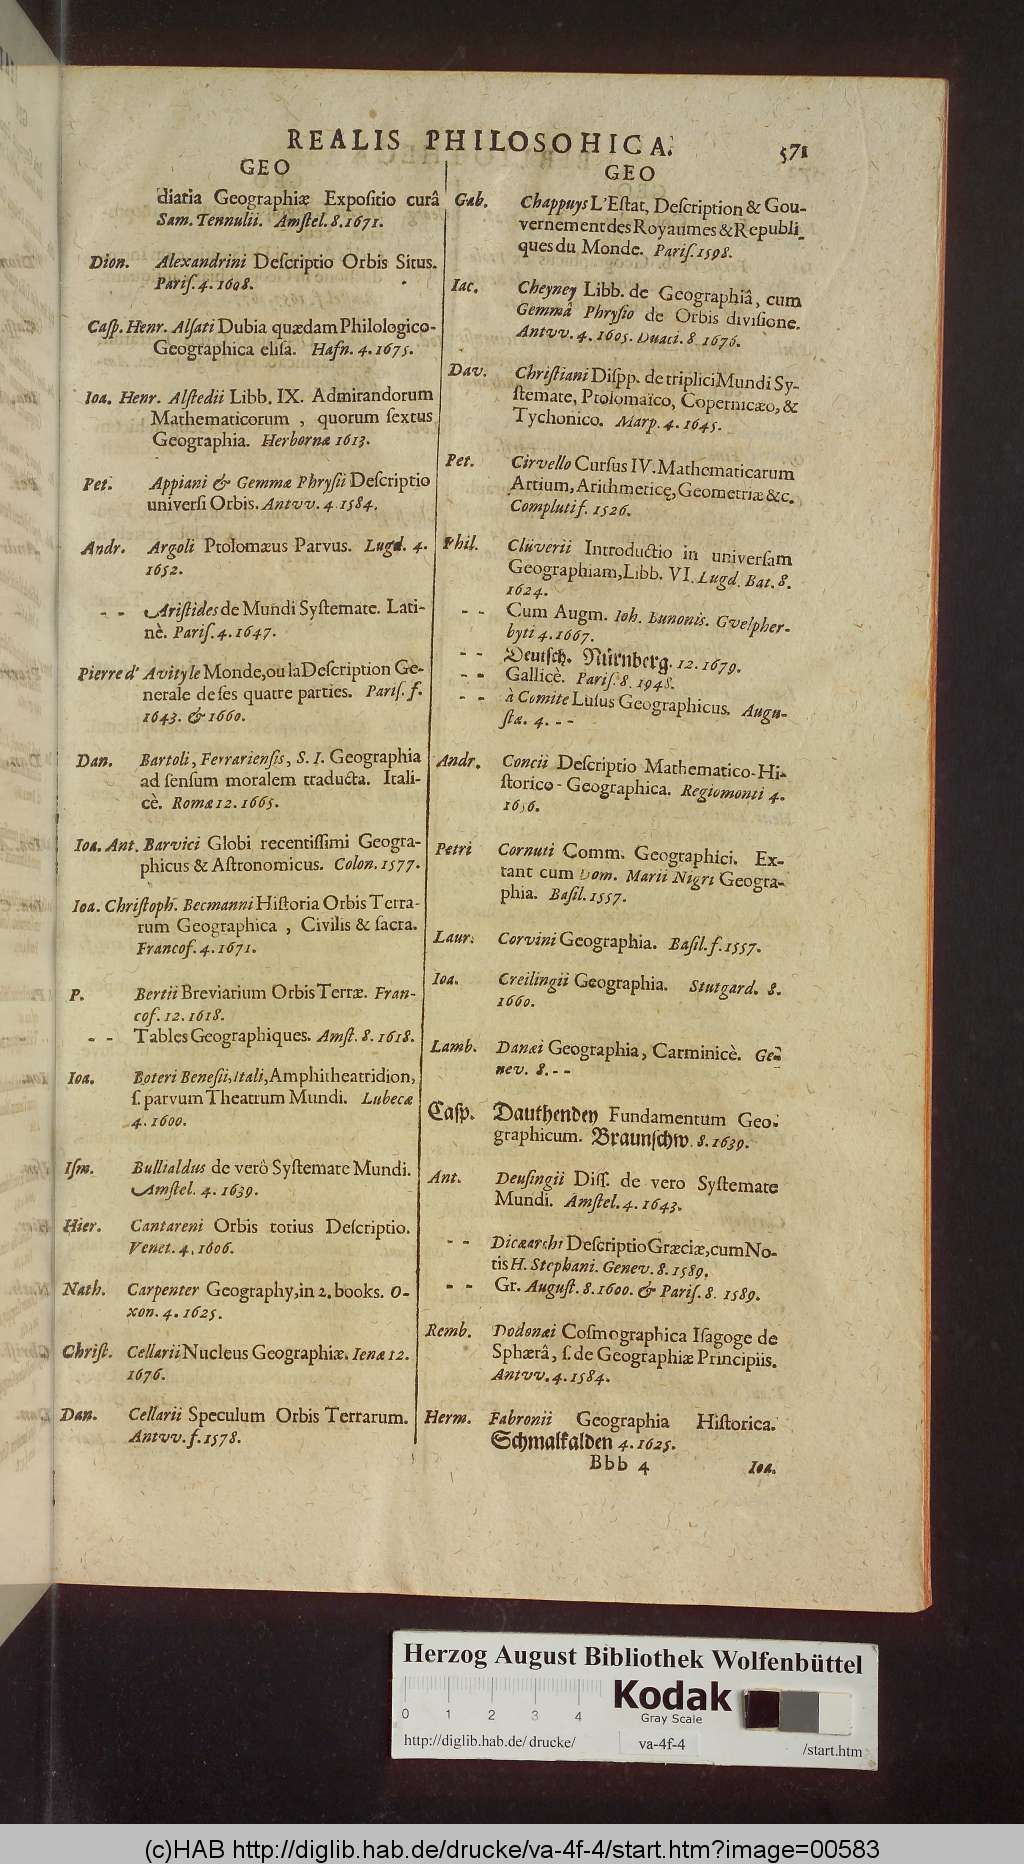 REALIS PHILOSOHICA.
571
GEO
diaria Geographiæ Expositio curâ
Sam. Tennulii. Amstel. 8. 1671.
Dion. Alexandrini Descriptio Orbis Situs.
Paris. 4. 1608.
Casp. Henr. Alsati Dubia quædam Philologico-
Geographica elisa. Hafn. 4. 1675.
Ioa. Henr. Alstedii Libb. IX. Admirandorum
Mathematicorum , quorum sextus
Geographia. Herbornæ 1613.
Pet. Appiani & Gemmæ Phrysii Descriptio
universi Orbis. Antvv. 4. 1584.
Andr. Argoli Ptolomæus Parvus. Lugd. 4.
1652.
- - Aristides de Mundi Systemate. Lati-
nè. Paris. 4. 1647.
Pierre d' Avity le Monde, ou la Description Ge-
nerale de ses quatre parties. Paris. f.
1643. & 1660.
Dan. Bartoli, Ferrariensis, S. I. Geographia
ad sensum moralem traducta. Itali-
cè. Romæ 12. 1665.
Ioa. Ant. Barvici Globi recentissimi Geogra-
phicus & Astronomicus. Colon. 1577.
Ioa. Christoph. Becmanni Historia Orbis Terra-
rum Geographica , Civilis & sacra.
Francof. 4. 1671.
P. Bertii Breviarium Orbis Terræ. Fran-
cof. 12. 1618.
- - Tables Geographiques. Amst. 8. 1618.
Ioa. Boteri Benesii, Itali, Amphitheatridion,
s. parvum Theatrum Mundi. Lubecæ
4. 1600.
Ism. Bullialdus de verò Systemate Mundi.
Amstel. 4. 1639.
Hier. Cantareni Orbis totius Descriptio.
Venet. 4. 1606.
Nath. Carpenter Geography, in 2. books. O-
xon. 4. 1625.
Christ. Cellarii Nucleus Geographiæ. Ienæ 12.
1676.
Dan. Cellarii Speculum Orbis Terrarum.
Antvv. f. 1578.
GEO
Gab. Chappuys L'Estat, Description & Gou-
vernement des Royaumes & Republi-
ques du Monde. Paris. 1598.
Iac. Cheyney Libb. de Geographiâ, cum
Gemmâ Phrysio de Orbis divisione.
Antvv. 4. 1605. Duaci. 8. 1676.
Dav. Christiani Dispp. de triplici Mundi Sy-
stemate, Ptolomaïco, Copernicæo, &
Tychonico. Marp. 4. 1645.
Pet. Cirvello Cursus IV. Mathematicarum
Artium, Arithmeticę, Geometriæ &c.
Complutif. 1526.
Phil. Clüverii Introductio in universam
Geographiam, Libb. VI. Lugd. Bat. 8.
1624.
- - Cum Augm. Ioh. Bunonis. Gvelpher-
byti 4. 1667.
- - Deutsch. Nürnberg. 12. 1679.
- - Gallicè. Paris. 8. 1948.
- - à Comite Lusus Geographicus. Augu-
stæ. 4. - -
Andr. Concii Descriptio Mathematico-Hi-
storico-Geographica. Regiomonti 4.
Petri Cornuti Comm. Geographici. Ex-
tant cum Dom. Marii Nigri Geogra-
phia. Basil. 1557.
Laur. Corvini Geographia. Basil. f. 1557.
Ioa. Creilingii Geographia. Stutgard. 8.
1660.
Lamb. Danæi Geographia, Carminicè. Ge-
nev. 8. - -
Casp. Dauthenden Fundamentum Geo-
graphicum. Braunschw. 8. 1639.
Ant. Deusingii Diss. de vero Systemate
Mundi. Amstel. 4. 1643.
- - Dicæarchi Descriptio Græciæ, cum No-
tis H. Stephani. Genev. 8. 1589.
- - Gr. August. 8. 1600. & Paris. 8. 1589.
Remb. Dodonæi Cosmographica Isagoge de
Sphærâ, s. de Geographiæ Principiis.
Antvv. 4. 1584.
Herm. Fabronii Geographia Historica.
Schmalkalden 4. 1625.
Bbb 4
Ioa.
Herzog August Bibliothek Wolfenbüttel
0 1 2 3 4
Kodak
Gray Scale
http://diglib.hab.de/drucke/
va-4f-4
/start.htm
(c)HAB http://diglib.hab.de/drucke/va-4f-4/start.htm?image=00583